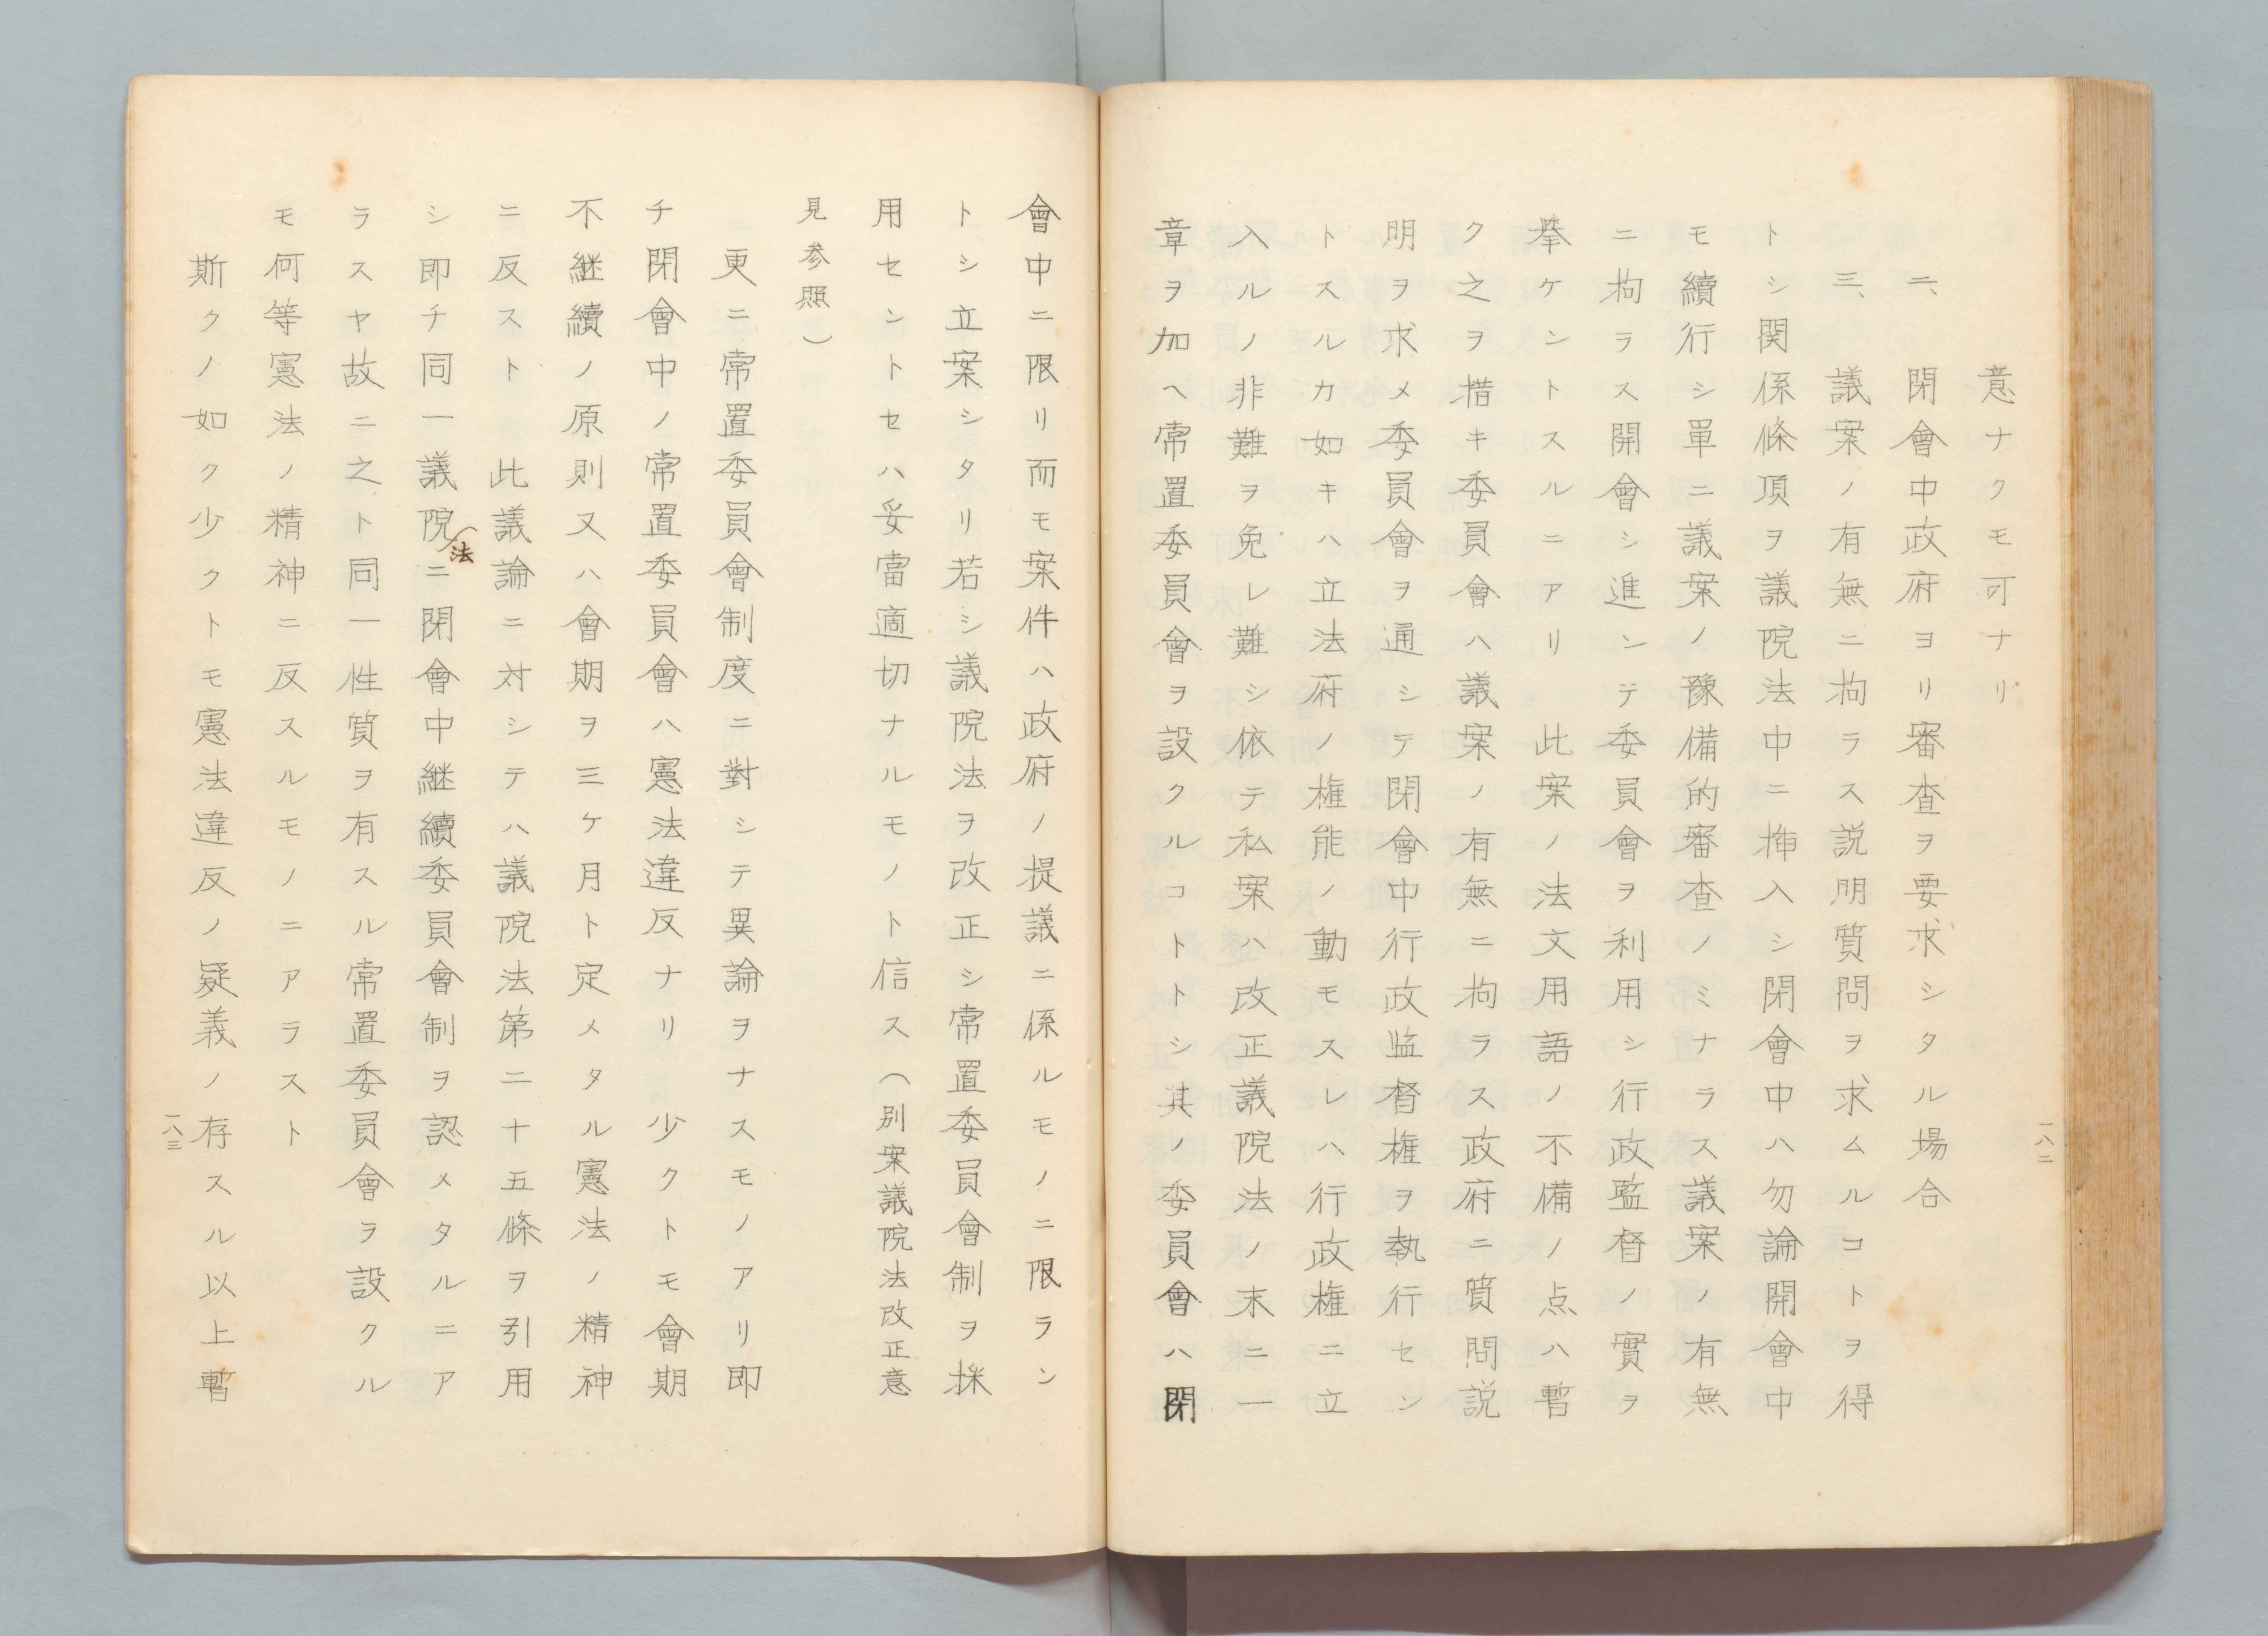 意ナクモ可ナリ
二、閉會中政府ヨリ審査ヲ要求シタル場合
三、議案ノ有無ニ拘ラス説明質問ヲ求ムルコトヲ得
トシ関係條項ヲ議院法中ニ挿入シ閉會中ハ勿論開會中
モ續行シ單ニ議案ノ豫備的審査ノミナラス議案ノ有無
ニ拘ラス開會シ進ンデ委員會ヲ利用シ行政監督ノ實ヲ
挙ケントスルニアリ 此案ノ法文用語ノ不備ノ点ハ暫
ク之ヲ措キ委員會ハ議案ノ有無ニ拘ラス政府ニ質問説
明ヲ求メ委員會ヲ通シテ閉會中行政監督権ヲ執行セン
トスルカ如キハ立法府ノ権能ノ動モスレハ行政権ニ立
入ルノ非難ヲ免レ難シ依テ私案ハ改正議院法ノ末ニ一
章ヲ加ヘ常置委員會ヲ設クルコトトシ其ノ委員會ハ閉
一八二
會中ニ限リ而モ案件ハ政府ノ提議ニ係ルモノニ限ラン
トシ立案シタリ若シ議院法ヲ改正シ常置委員會制ヲ採
用セントセハ妥當適切ナルモノト信ス（別案議院法改正意
見参照）
更ニ常置委員會制度ニ對シテ異論ヲナスモノアリ即
チ閉會中ノ常置委員會ハ憲法違反ナリ 少クトモ會期
不継續ノ原則又ハ會期ヲ三ケ月ト定メタル憲法ノ精神
ニ反スト 此議論ニ対シテハ議院法第二十五條ヲ引用
シ即チ同一議院（法ニ閉會中継續委員會制ヲ認メタルニア
ラスヤ故ニ之ト同一性質ヲ有スル常置委員會ヲ設クル
モ何等憲法ノ精神ニ反スルモノニアラスト
斯クノ如ク少クトモ憲法違反ノ疑義ノ存スル以上暫
一八三